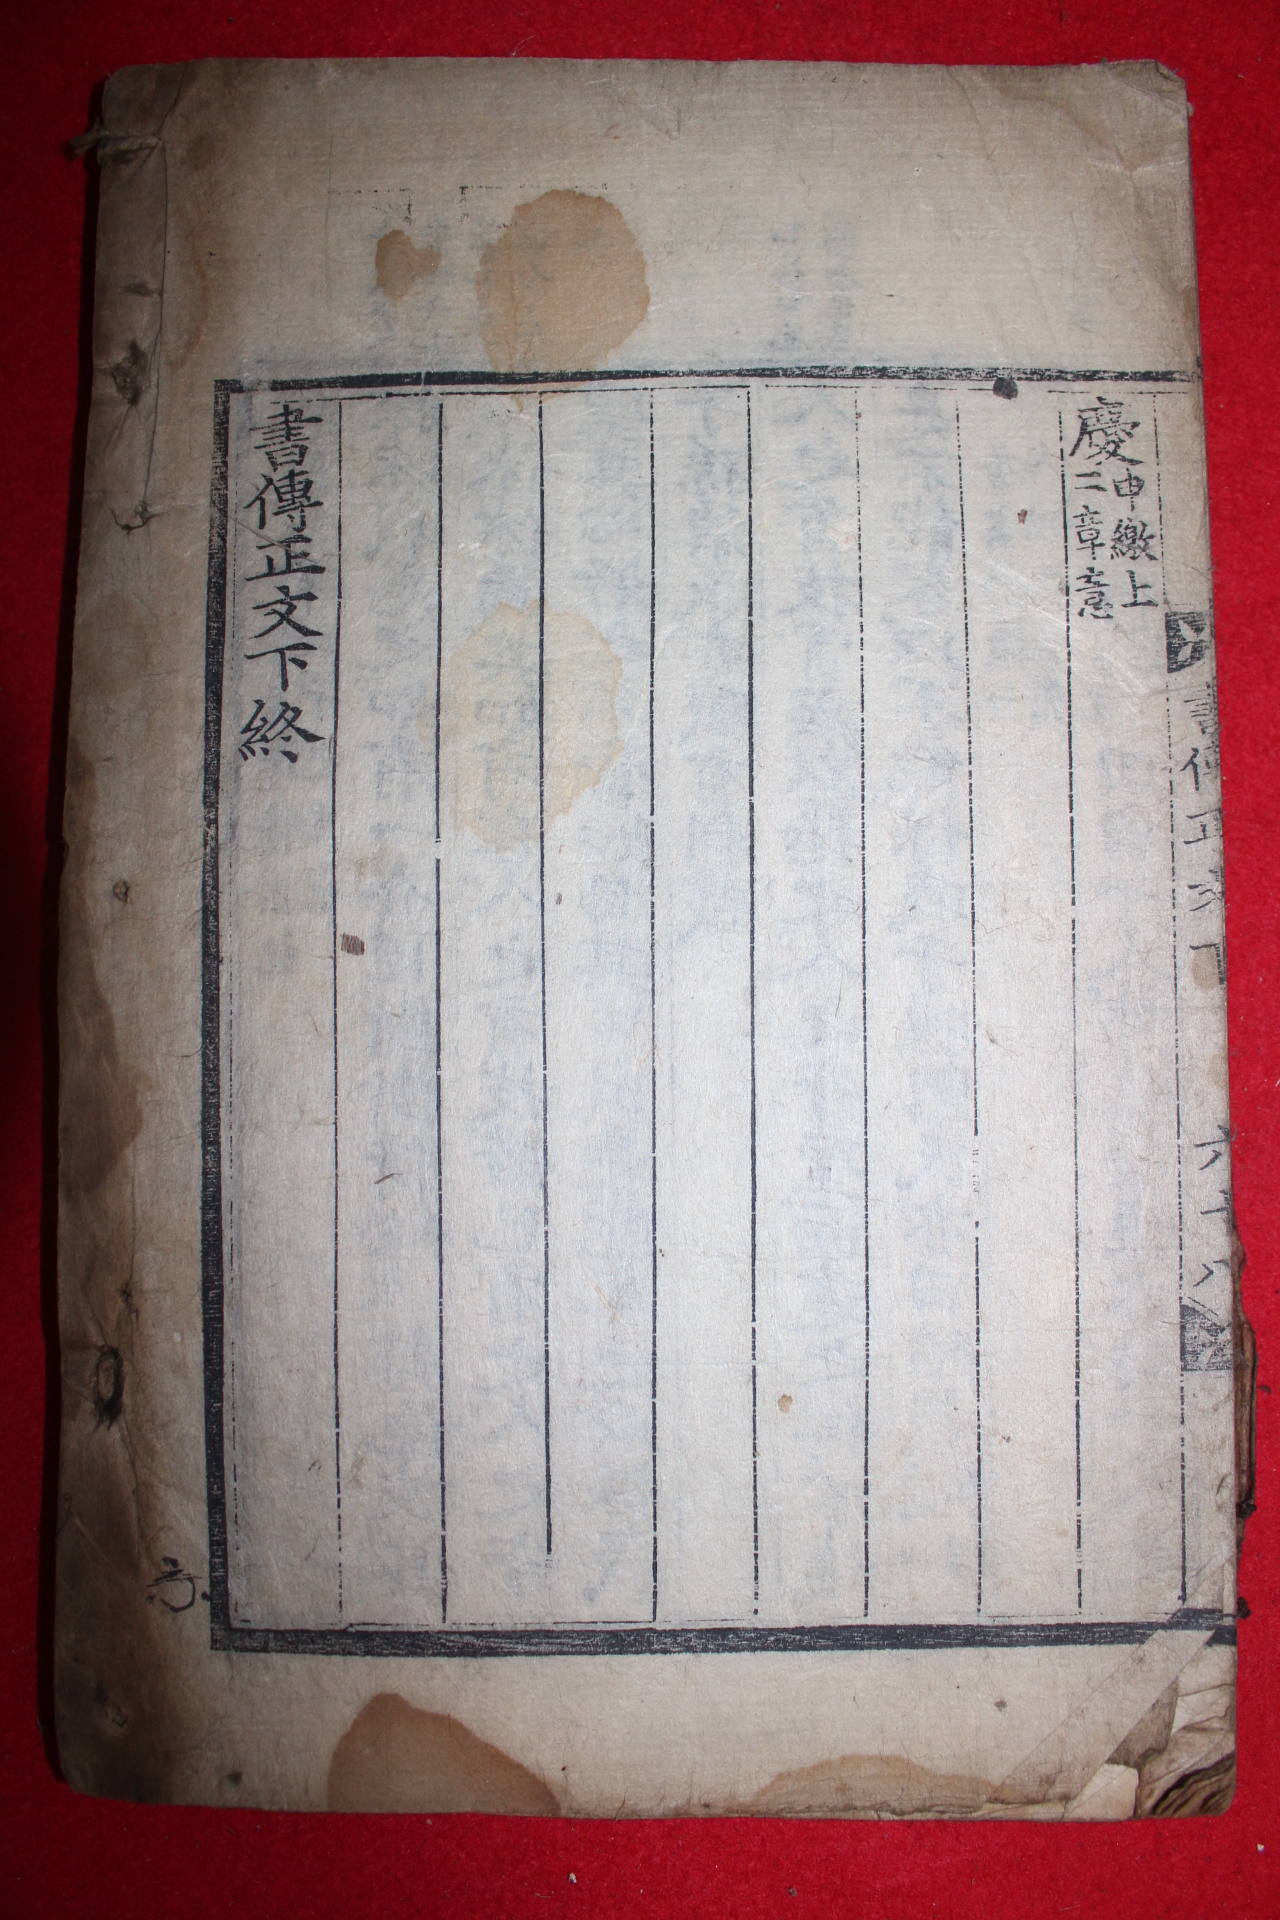 書傳正文下 六十八
慶
申繳上
二章意
書傳正文下終